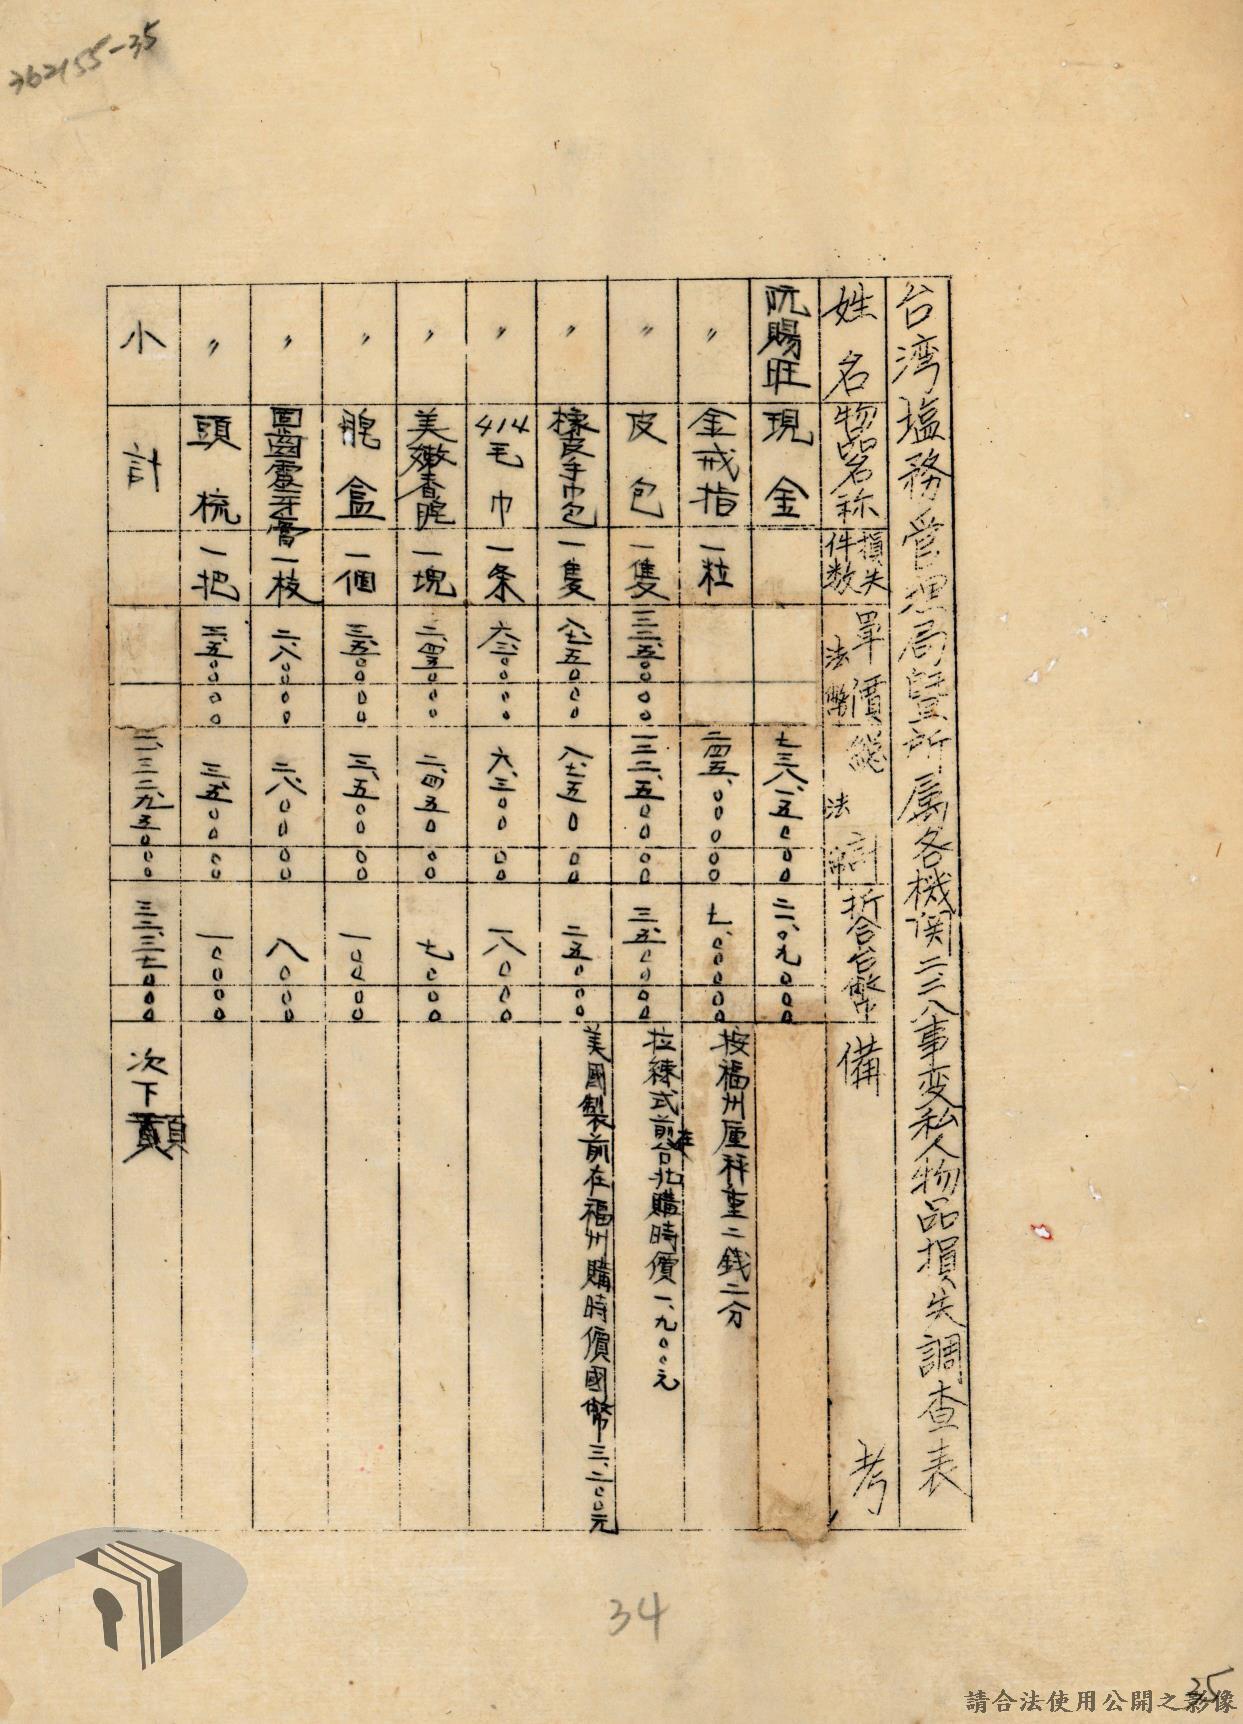 362155-35
台湾塩務管理局曁所属各機関二二八事変私人物品損失調查表
姓名 物品名称 損失件数 單價法幣 總計法幣 折合台幣 備考
阮賜旺 現金 七三八、五〇〇〇〇 二一、〇九〇〇〇
〃 金戒指 一粒 二四五、〇〇〇〇〇 七、〇〇〇〇〇 按福州厘秤重二錢二分
〃 皮包 一隻 一三二、五〇〇〇〇 三、五〇〇〇〇 拉練式前在台北購時價一、九〇〇元
〃 橡皮手巾包 一隻 八、七五〇〇〇 八、七五〇〇〇 二五〇〇〇 美國製前在福州購時價國幣三、二〇〇元
〃 414毛巾 一条 六、三〇〇〇〇 六、三〇〇〇〇 一八〇〇〇
〃 美嫩香脘 一塊 二、四五〇〇〇 二、四五〇〇〇 七〇〇〇
〃 脘盒 一個 三、五〇〇〇〇 三、五〇〇〇〇 一〇〇〇〇
〃 固齒靈牙膏 一枝 二、八〇〇〇〇 二、八〇〇〇〇 八〇〇〇
〃 頭梳 一把 三、五〇〇〇〇 三、五〇〇〇〇 一〇〇〇〇
小計 三二、三七〇〇〇 次下
34
25
請合法使用公開之影像